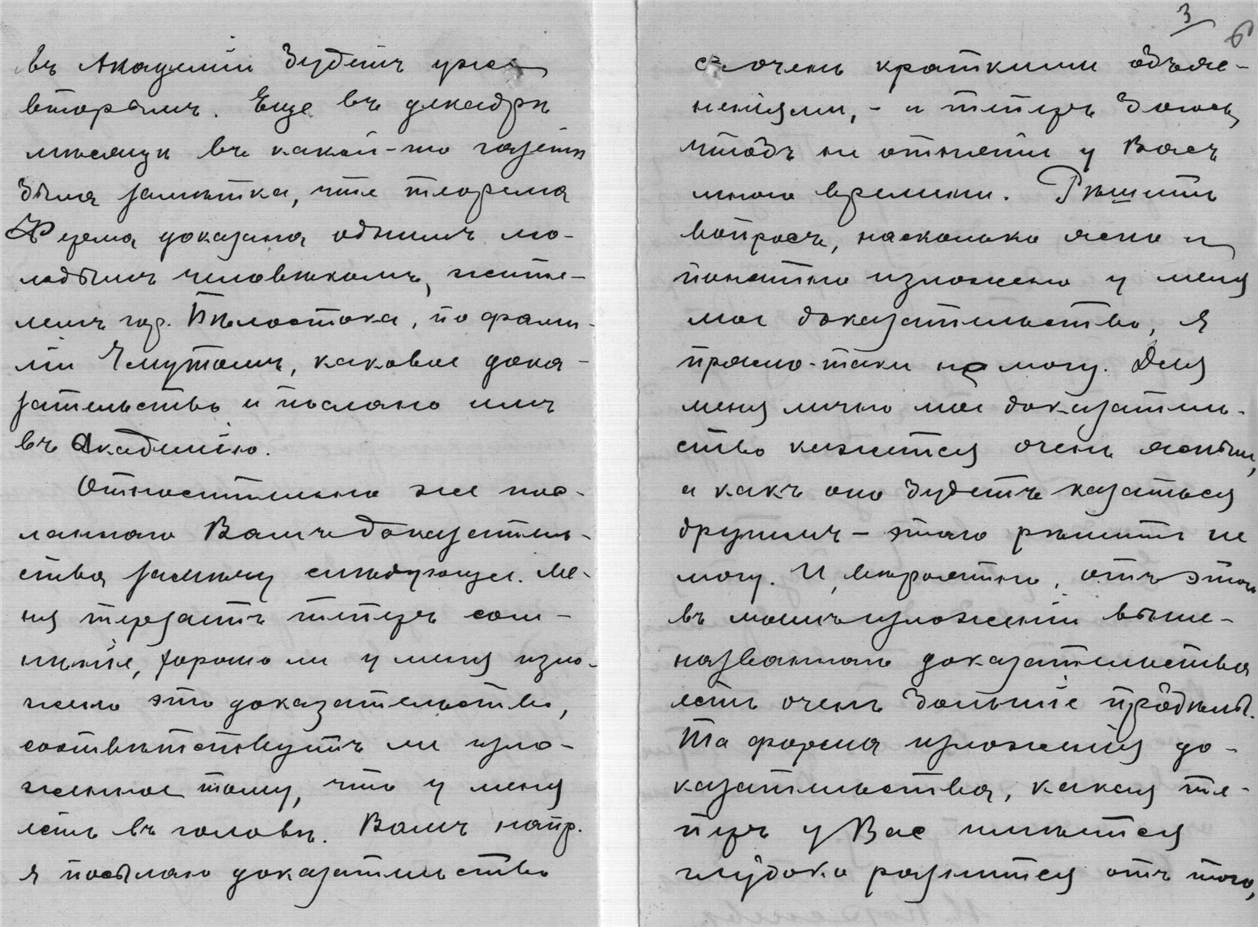 въ Академіи будетъ уже
вторымъ. Еще въ декабрѣ
мѣсяцѣ въ какой-то газетѣ
была замѣтка, что теорема
Ферма доказана однимъ мо-
лодымъ человѣкомъ, жите-
лемъ гор. Бѣлостока, по фами-
ліи, каковое дока-
зательство и послано имъ
въ Академію.
Относительно же пос-
ланнаго Вамъ доказатель-
ства замѣчу слѣдующее. Ме-
ня терзаетъ теперь сом-
нѣніе, хорошо ли у меня изло-
жено это доказательство,
соотвѣтствуетъ ли изло-
женное тому, что у меня
есть въ головѣ. Вамъ напр.
я посылаю доказательство
3
6
съ очень краткими объяс-
неніями, - а теперь боюсь,
чтобъ не отняти у Васъ
много времени. Рѣшить
вопросъ, насколько ясно и
понятно изложено у меня
мое доказательство, я
прямо-таки не могу. Для
меня лично мое доказатель-
ство кажется очень яснымъ,
а какъ оно будетъ казаться
другимъ – этого рѣшить не
могу. И, вѣроятно, отъ этого
въ моемъ изложеніи выше-
названнаго доказательства
есть очень большіе пробѣлы.
Та форма изложенія до-
казательства, какая те-
перь у Вас имѣется
глубоко разнится отъ того,